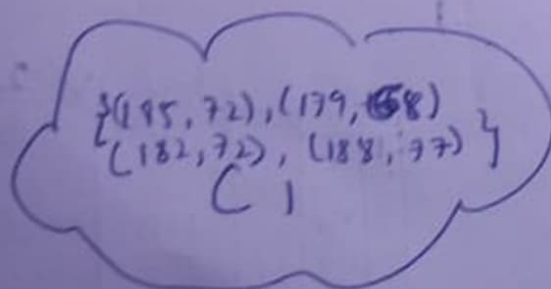 {(185, 72), (179, 68)
(182, 72), (188, 77)}
C1